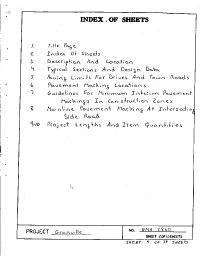 INDEX OF SHEETS
1 Title Page
2 Index Of Sheets
3 Description And Location
4 Typical Sections And Design Data
5 Paving Limits For Drives And Town Roads
6 Pavement Marking Locations
7 Guidelines For Minimum Interim Pavement
Markings In Construction Zones
8 Mainline Pavement Marking At Intersecting
Side Road
Project Lengths And Item Quantities
PROJECT Granville
NO.
SHEET OF SHEETS
SHEET OF SHEETS